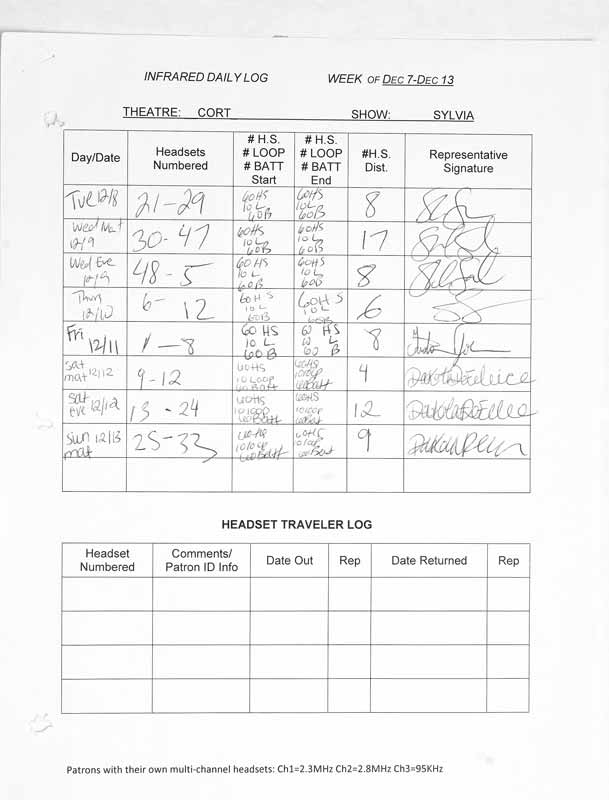 INFRARED DAILY LOG WEEK OF DEC 7-DEC 13
THEATRE: CORT SHOW: SYLVIA
Day/Date Headsets Numbered # H.S. # LOOP # BATT Start # H.S. # LOOP # BATT End #H.S. Dist. Representative Signature
Tue 12/8 21-29 60HS 10 L 60B 60HS 10 L 60B 8
Wed Mat 12/9 30-47 60HS 10 L 60B 60HS 10 L 60B 17
Wed Eve 12/9 48-5 60HS 10 L 60B 60HS 10 L 60B 8
Thurs 12/10 6-12 60HS 10 L 60B 60HS 10 L 60B 6
Fri 12/11 1-8 60 HS 10 L 60 B 60 HS 10 L 60 B 8
Sat mat 12/12 9-12 60HS 10 LOOP 60Batt 60HS 10 loop 60Batt 4
Sat eve 12/12 13-24 60HS 10 loop 60Batt 60HS 10 loop 60Batt 12
Sun 12/13 mat 25-33 60HS 10 loop 60Batt 60HS 10 loop 60Batt 9
HEADSET TRAVELER LOG
Headset Numbered Comments/ Patron ID Info Date Out Rep Date Returned Rep
Patrons with their own multi-channel headsets: Ch1=2.3MHz Ch2=2.8MHz Ch3=95KHz